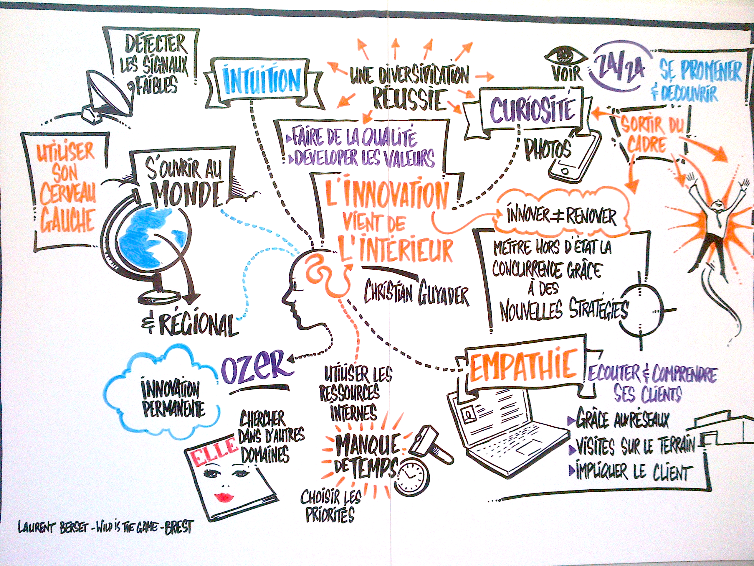 DÉTECTER
LES SIGNAUX
FAIBLES
INTUITION
UNE DIVERSIFICATION
RÉUSSIE
VOIR
24/24
SE PROMENER
& DÉCOUVRIR
CURIOSITÉ
PHOTOS
SORTIR DU
CADRE
FAIRE DE LA QUALITÉ
DÉVELOPER LES VALEURS
UTILISER
SON
CERVEAU
GAUCHE
S'OUVRIR AU
MONDE
& RÉGIONAL
L'INNOVATION
VIENT DE
L'INTÉRIEUR
CHRISTIAN GUYADER
INNOVER ≠ RENOVER
METTRE HORS D'ÉTAT LA
CONCURRENCE GRÂCE
À DES
NOUVELLES STRATÉGIES
EMPATHIE
ECOUTER & COMPRENDRE
SES CLIENTS
GRÂCE AUX RÉSEAUX
VISITES SUR LE TERRAIN
IMPLIQUER LE CLIENT
OZER
INNOVATION
PERMANENTE
CHERCHER
DANS D'AUTRES
DOMAINES
ELLE
UTILISER LES
RESSOURCES
INTERNES
MANQUE
DE TEMPS
CHOISIR LES
PRIORITÉS
LAURENT BERSET - WILD IS THE GAME - BREST